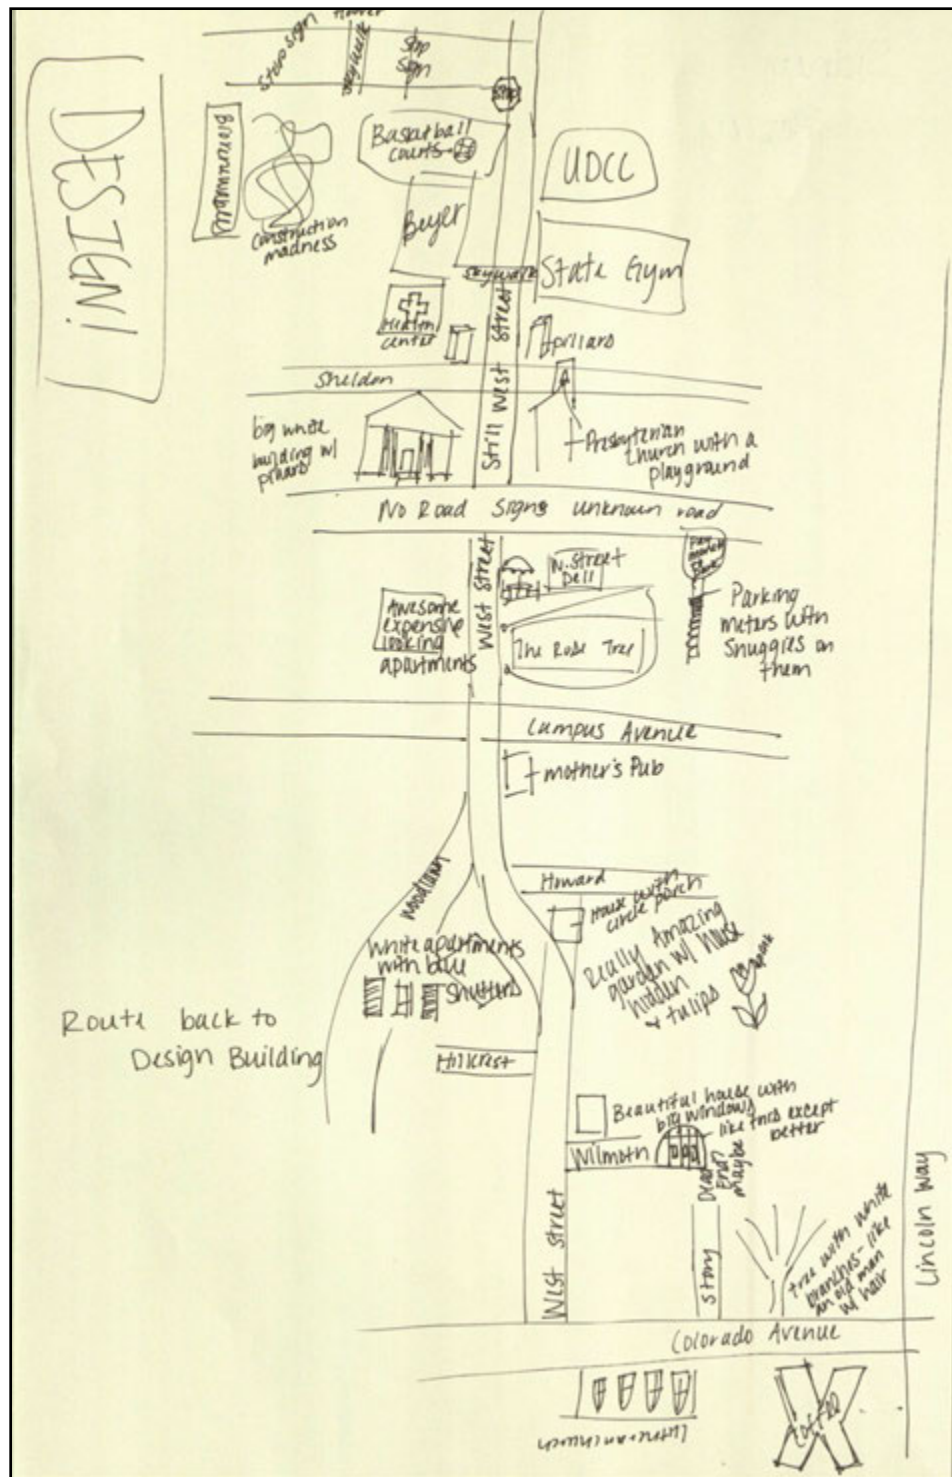 Stop sign
skywalk
Stop
sign
Stop
DESIGN!
Basketball
courts
UDCC
Construction
madness
Beyer
skywalk
State Gym
Health
center
pillars
Sheldon
Still West Street
big white
building w/
pillars
Presbyterian
church with a
playground
No Road Signs unknown road
West Street
W. Street
Deli
Awesome
expensive
looking
apartments
The Rose Tree
Parking
meters with
Snuggies on
them
Campus Avenue
mother's Pub
Woodlawn
Howard
House with
circle porch
Really Amazing
garden w/ house
hidden
+ tulips
White apartments
with blue
shutters
Route back to
Design Building
Hillcrest
Beautiful house with
big windows
like this except
better
Wilmoth
Dead
End?
maybe
West Street
Story
tree with white
branches - like
an old man
w/ hair
Lincoln Way
Colorado Avenue
Lutheran church